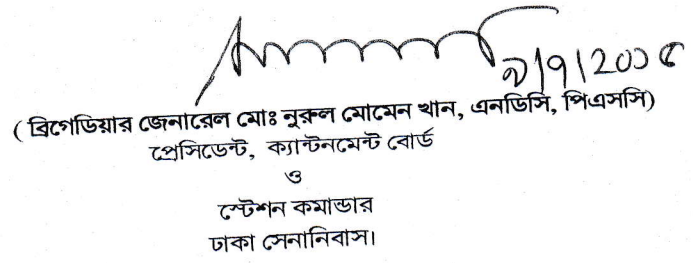 ৯|৭|২০১৫
( ব্রিগেডিয়ার জেনারেল মোঃ নুরুল মোমেন খান, এনডিসি, পিএসসি)
প্রেসিডেন্ট, ক্যান্টনমেন্ট বোর্ড
ও
স্টেশন কমান্ডার
ঢাকা সেনানিবাস।